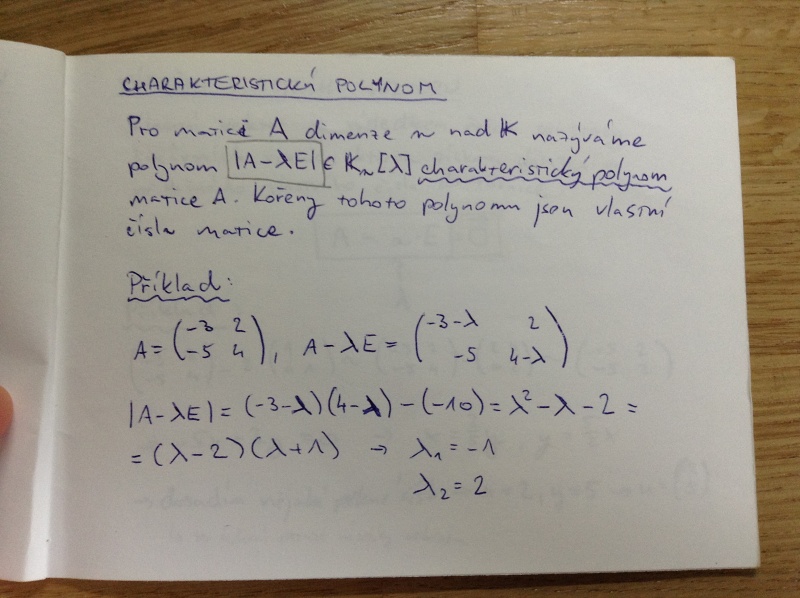 CHARAKTERISTICKÝ POLYNOM
Pro matici A dimenze n nad K nazýváme
polynom |A-λE| ∈ Kn[λ] charakteristický polynom
matice A. Kořeny tohoto polynomu jsou vlastní
čísla matice.
Příklad:
A = (-3 2
-5 4), A-λE = (-3-λ 2
-5 4-λ)
|A-λE| = (-3-λ)(4-λ)-(-10) = λ²-λ-2 =
= (λ-2)(λ+1) → λ₁ = -1
λ₂ = 2